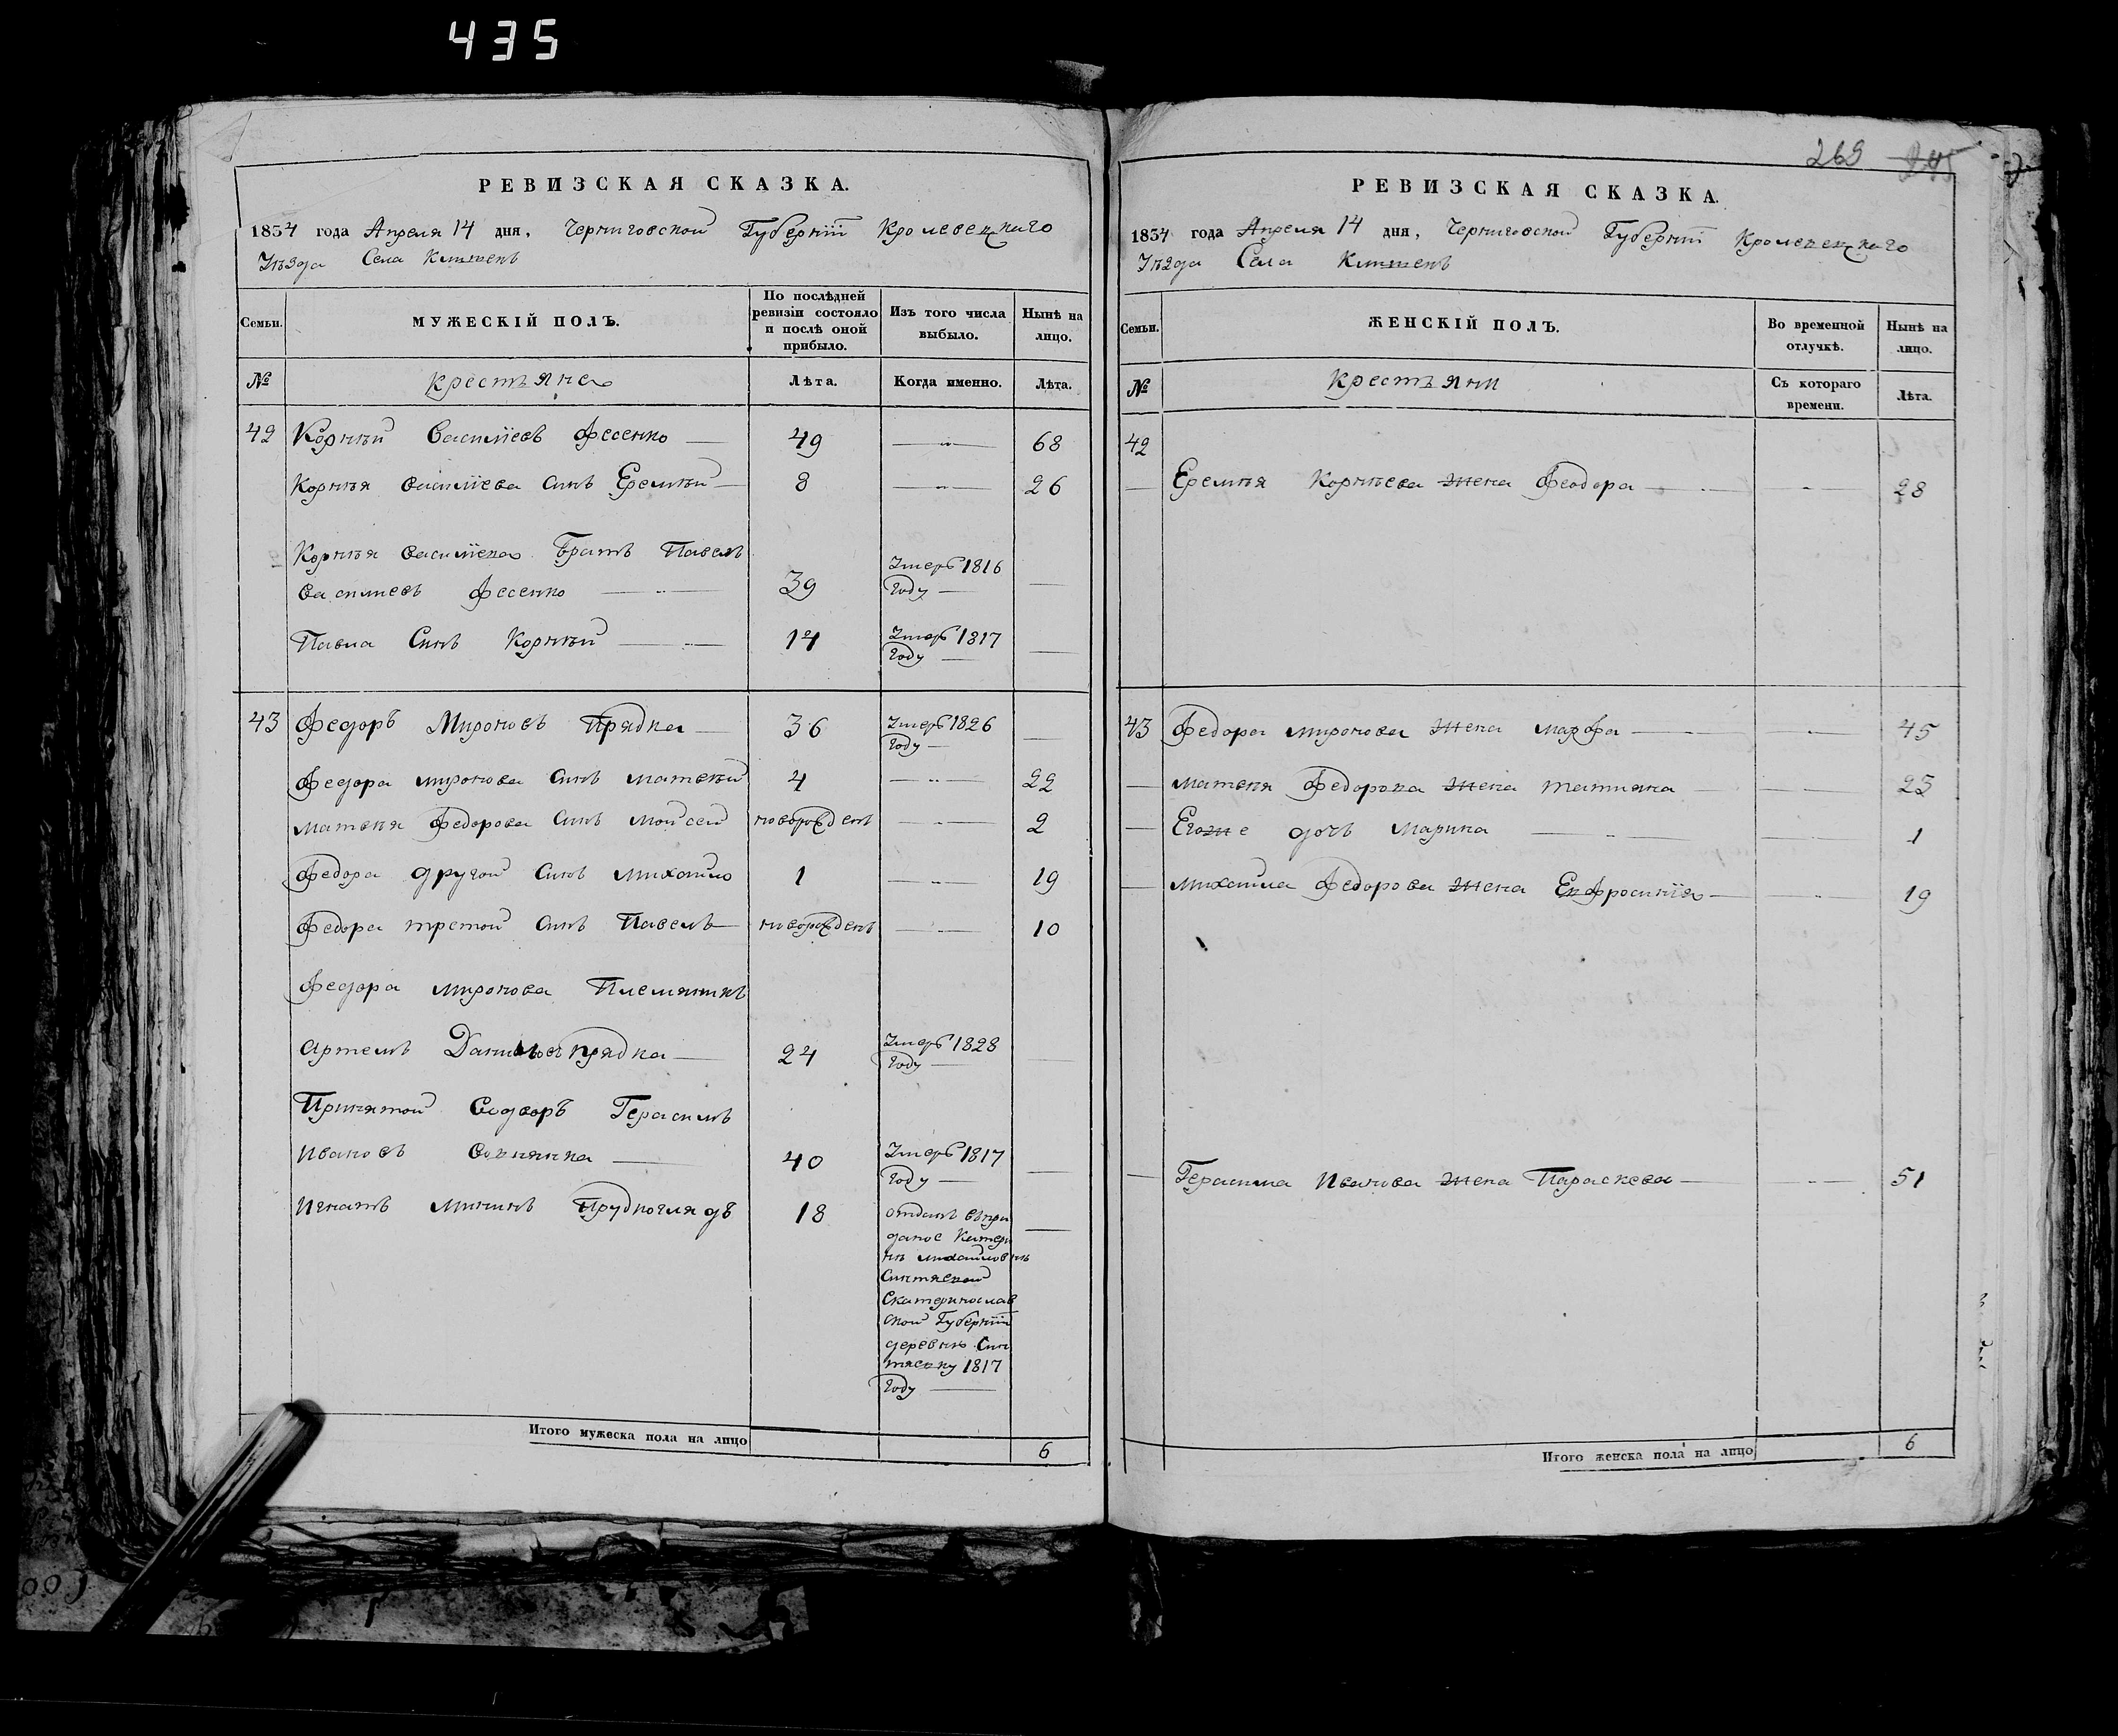 435
269
РЕВИЗСКАЯ СКАЗКА.
1834 года Апреля 14 дня, Черниговской Губернїи Кролевецкаго
Уѣзда Села
Семьи.
МУЖЕСКІЙ ПОЛЪ.
По послѣдней ревизіи состояло и послѣ оной прибыло.
Изъ того числа выбыло.
Нынѣ на лицо.
№
Крестъяне
Лѣта.
Когда именно.
Лѣта.
42 Корнѣй Василїевъ Фесенко 49 68
Корнѣя Василїева Синъ Еремѣй 8 26
Корнѣя Василїева Братъ Павелъ
Василиевъ Фесенко 39 Умеръ 1816 Году
Павла Синъ Корнѣй 14 Умеръ 1817 Году
43 Федоръ Мироновъ Прядка 36 Умеръ 1826 Году
Федора Миронова Синъ Матвѣй 4 22
Матвѣя Федорова Синъ Мойсей новорожденъ 2
Федора другой Синъ Михайло 1 19
Федора третой Синъ Павелъ новорожденъ 10
Федора Миронова Племяникъ
Артемъ Прядка 24 Умеръ 1828 Году
Принятой Герасимъ
Ивановъ 40 Умеръ 1817 Году
Игнатъ Мининъ Прудкоглядъ 18 отданъ въпри
даное Катери
нѣ михайловнѣ
Екатеринослав
ской Губернїи
деревнѣ Син
1817
Году
Итого мужеска пола на лицо 6
РЕВИЗСКАЯ СКАЗКА.
1834 года Апреля 14 дня, Черниговской Губернїи Кролевецкаго
Уѣзда Села
Семьи.
ЖЕНСКІЙ ПОЛЪ.
Во временной отлучкѣ.
Нынѣ на лицо.
№
Крестъяни
Съ котораго времени.
Лѣта.
42
Еремѣя Корнѣева жена Феодора 28
43 Федора Миронова жена Марфа 45
Матвѣя Федорова жена Татияна 23
Егоже дочъ Марина 1
Михайла Федорова жена Евфросинїя 19
Герасима Иванова жена Параскева 51
Итого женска пола на лицо 6